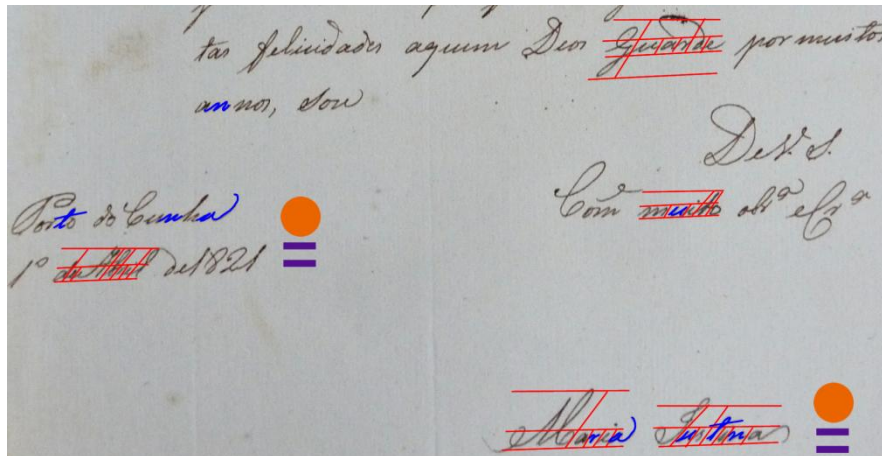 tas felicidades aquem Deos Guarde por muitos
annos, Sou
De V. S.
Com muitto obrª e Crª
Porto do Cunha
1º de Abril de 1821
Maria Justina